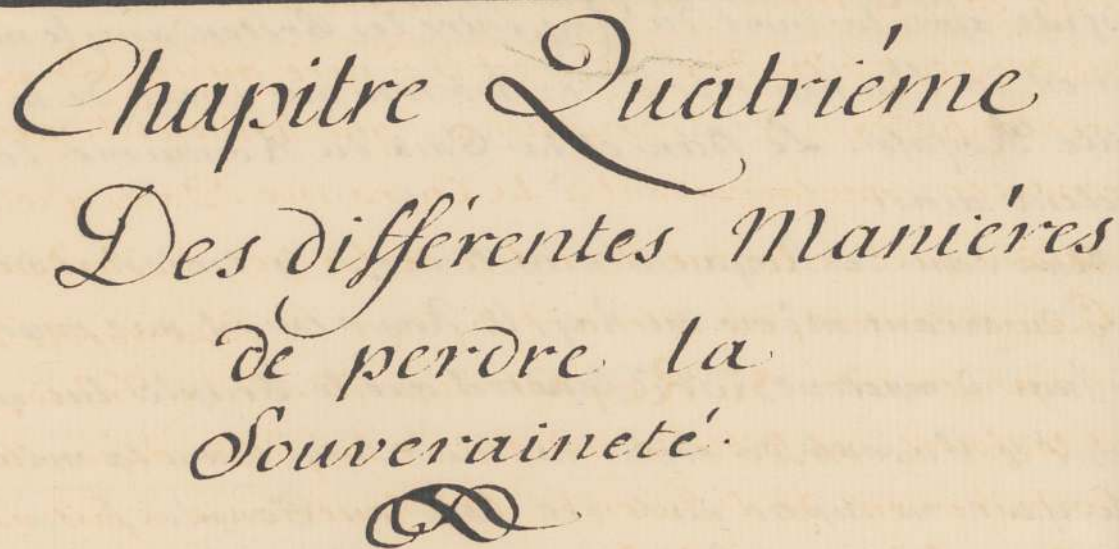 Chapitre Quatriéme
Des différentes Maniéres
de perdre la
Souveraineté.